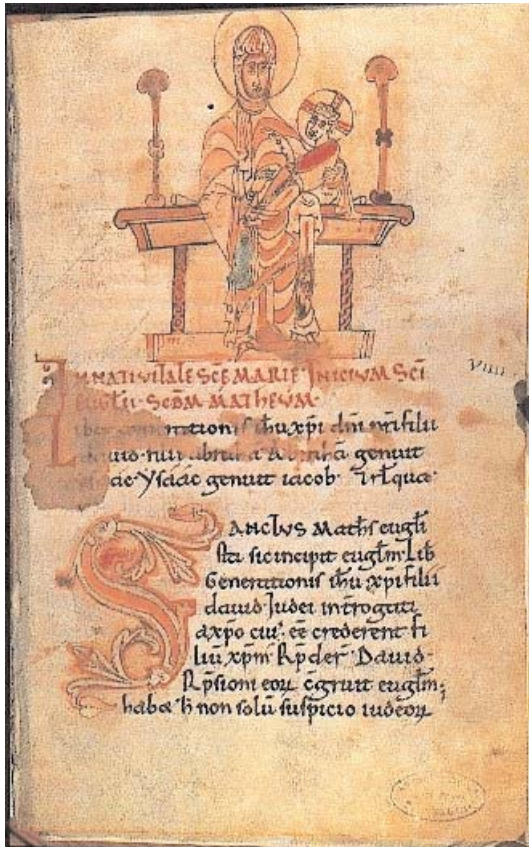 IN NATIVITATE SCE MARIE INICIVM SCI
EUGLII SCDM MATHEVM
Liber generationis ihu xpi dni nri filii
dauid
genuit
Ysaac genuit iacob
VIIII
SANCTVS Maths eugli
sta sic incipit euglm Lib
Generationis ihu xpi filii
dauid Iudei introgati
axpo cui ee crederent fi
liu xpm Rpder Dauid
Rpsioni eoru cgruit euglm
habet h non solu suspicio iudeoru